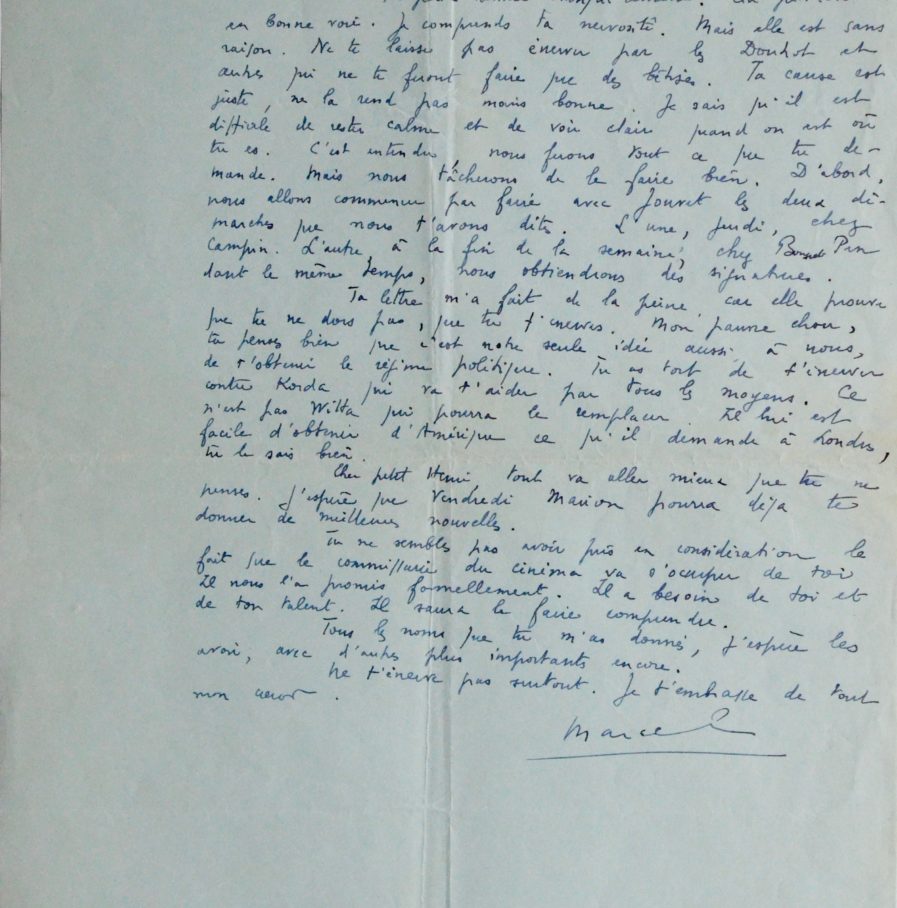 en bonne voie. Je comprends ta nervosité. Mais elle est sans
raison. Ne te laisse pas énerver par les Douhot et
autres qui ne te feront faire que des bêtises. Ta cause est
juste, ne la rend pas moins bonne. Je sais qu'il est
difficile de rester calme et de voir clair quand on est où
tu es. C'est entendu, nous ferons tout ce que tu de-
mande. Mais nous tâcherons de le faire bien. D'abord,
nous allons commencer par faire avec Jouvet les deux dé-
marches que nous t'avons dites. L'une, jeudi, chez
Campin. L'autre, à la fin de la semaine, chez
dant le même temps, nous obtiendrons des signatures.
Ta lettre m'a fait de la peine car elle prouve
que tu ne dors pas, que tu t'énerves. Mon pauvre chou,
tu penses bien que c'est notre seule idée aussi à nous,
de t'obtenir le régime politique. Tu as tort de t'énerver
contre Korda qui va t'aider par tous les moyens. Ce
n'est pas Witta qui pourra le remplacer. Il lui est
facile d'obtenir d'Amérique ce qu'il demande à Londres,
tu le sais bien.
Cher petit Henri tout va aller mieux que tu ne
penses. J'espère que Vendredi Marion pourra déjà te
donner de meilleures nouvelles.
Tu ne sembles pas avoir pris en considération le
fait que le commissaire du cinéma va s'occuper de toi
Il nous l'a promis formellement. Il a besoin de toi et
de ton talent. Il saura le faire comprendre.
Tous les noms que tu m'as donnés, j'espère les
avoir, avec d'autres plus importants encore.
Ne t'énerve pas surtout. Je t'embrasse de tout
mon cœur.
Marcel